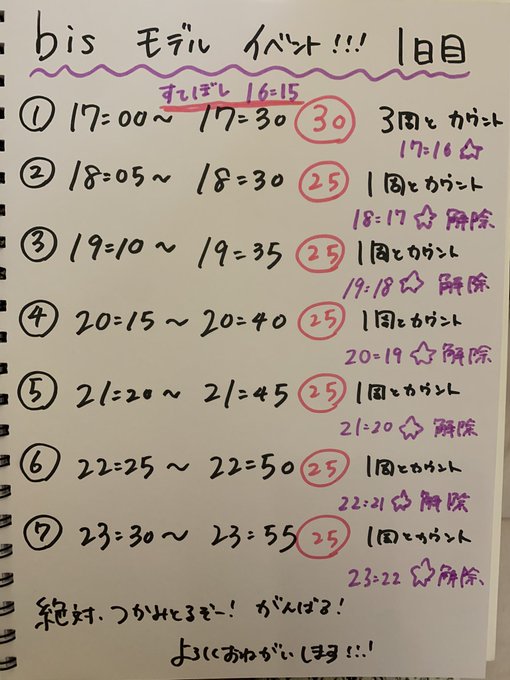 bis モデル イベント!!! 1日目
すてぼし 16=15
① 17=00〜 17=30 30 3周と カウント
17=16☆
② 18=05〜 18=30 25 1周とカウント
18=17 ☆ 解除
③ 19=10〜 19=35 25 1周とカウント
19=18 ☆ 解除
④ 20=15〜20=40 25 1周とカウント
20=19 ☆ 解除
⑤ 21=20〜 21=45 25 1周とカウント
21=20 ☆ 解除
⑥ 22=25〜 22=50 25 1周とカウント
22=21 ☆ 解除
⑦ 23=30〜 23=55 25 1周とカウント
23=22 ☆解除
絶対、つかみとるぞー! がんばる!
よろしくおねがいします!!!